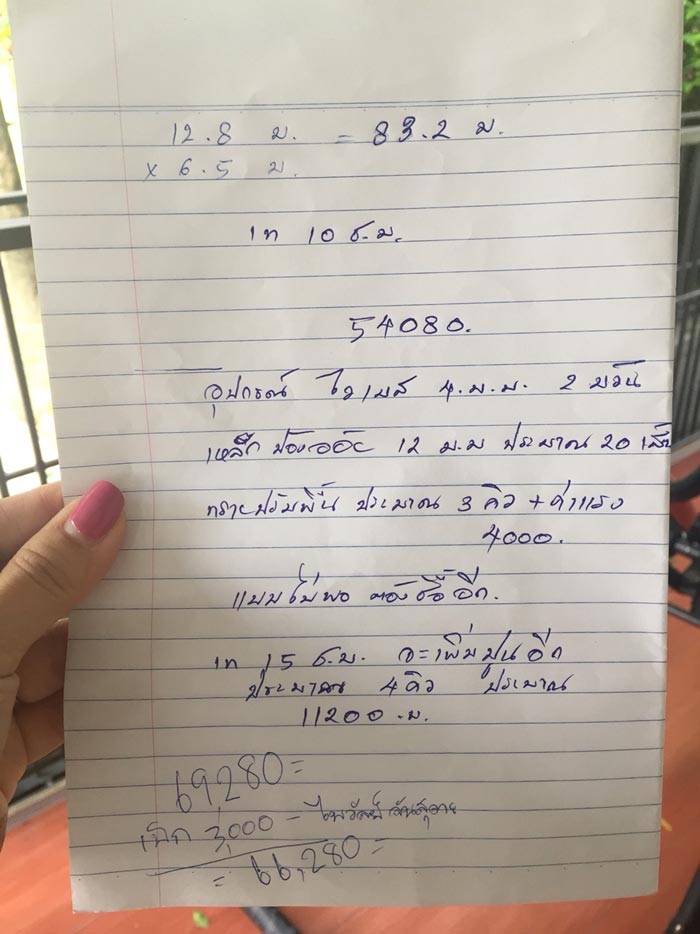 12.8 ม. = 83.2 ม.
x 6.5 ม.
เท 10 ซ.ม.
54080.
อุปกรณ์ ไวเมส 4.ม.ม. 2 มวน
เหล็ก ข้ออ้อย 12 ม.ม ประมาณ 20 เส้น
ทรายปรับพื้น ประมาณ 3 คิว + ค่าแรง
4000.
แบบไม่พอ ต้องซื้ออีก.
เท 15 ซ.ม. จะเพิ่มปูนอีก
ประมาณ 4 คิว ประมาณ
11200 .บ.
69,280 =
เบิก 3,000 -
= 66,280 =